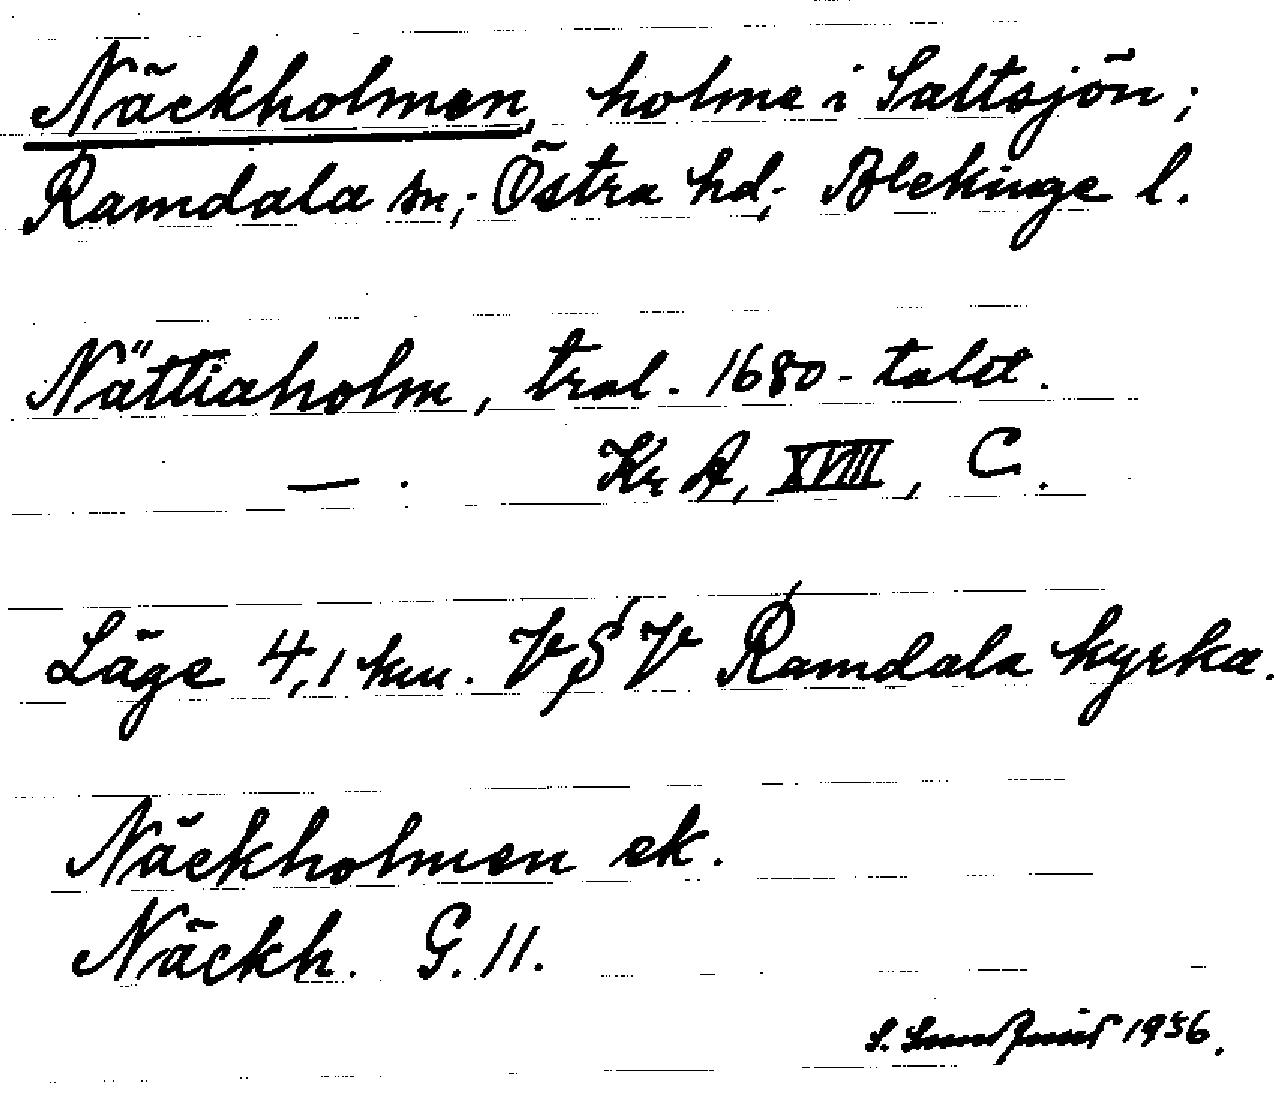 Näckholmen, holme i Saltsjön;
Ramdala sn; Östra hd; Blekinge l.
Nättiaholm, trol. 1680-talet.
— . KrA, XVIII, C.
Läge 4,1 km. V§V Ramdala kyrka.
Näckholmen ek.
Näckh. G. 11.
S. 1936.